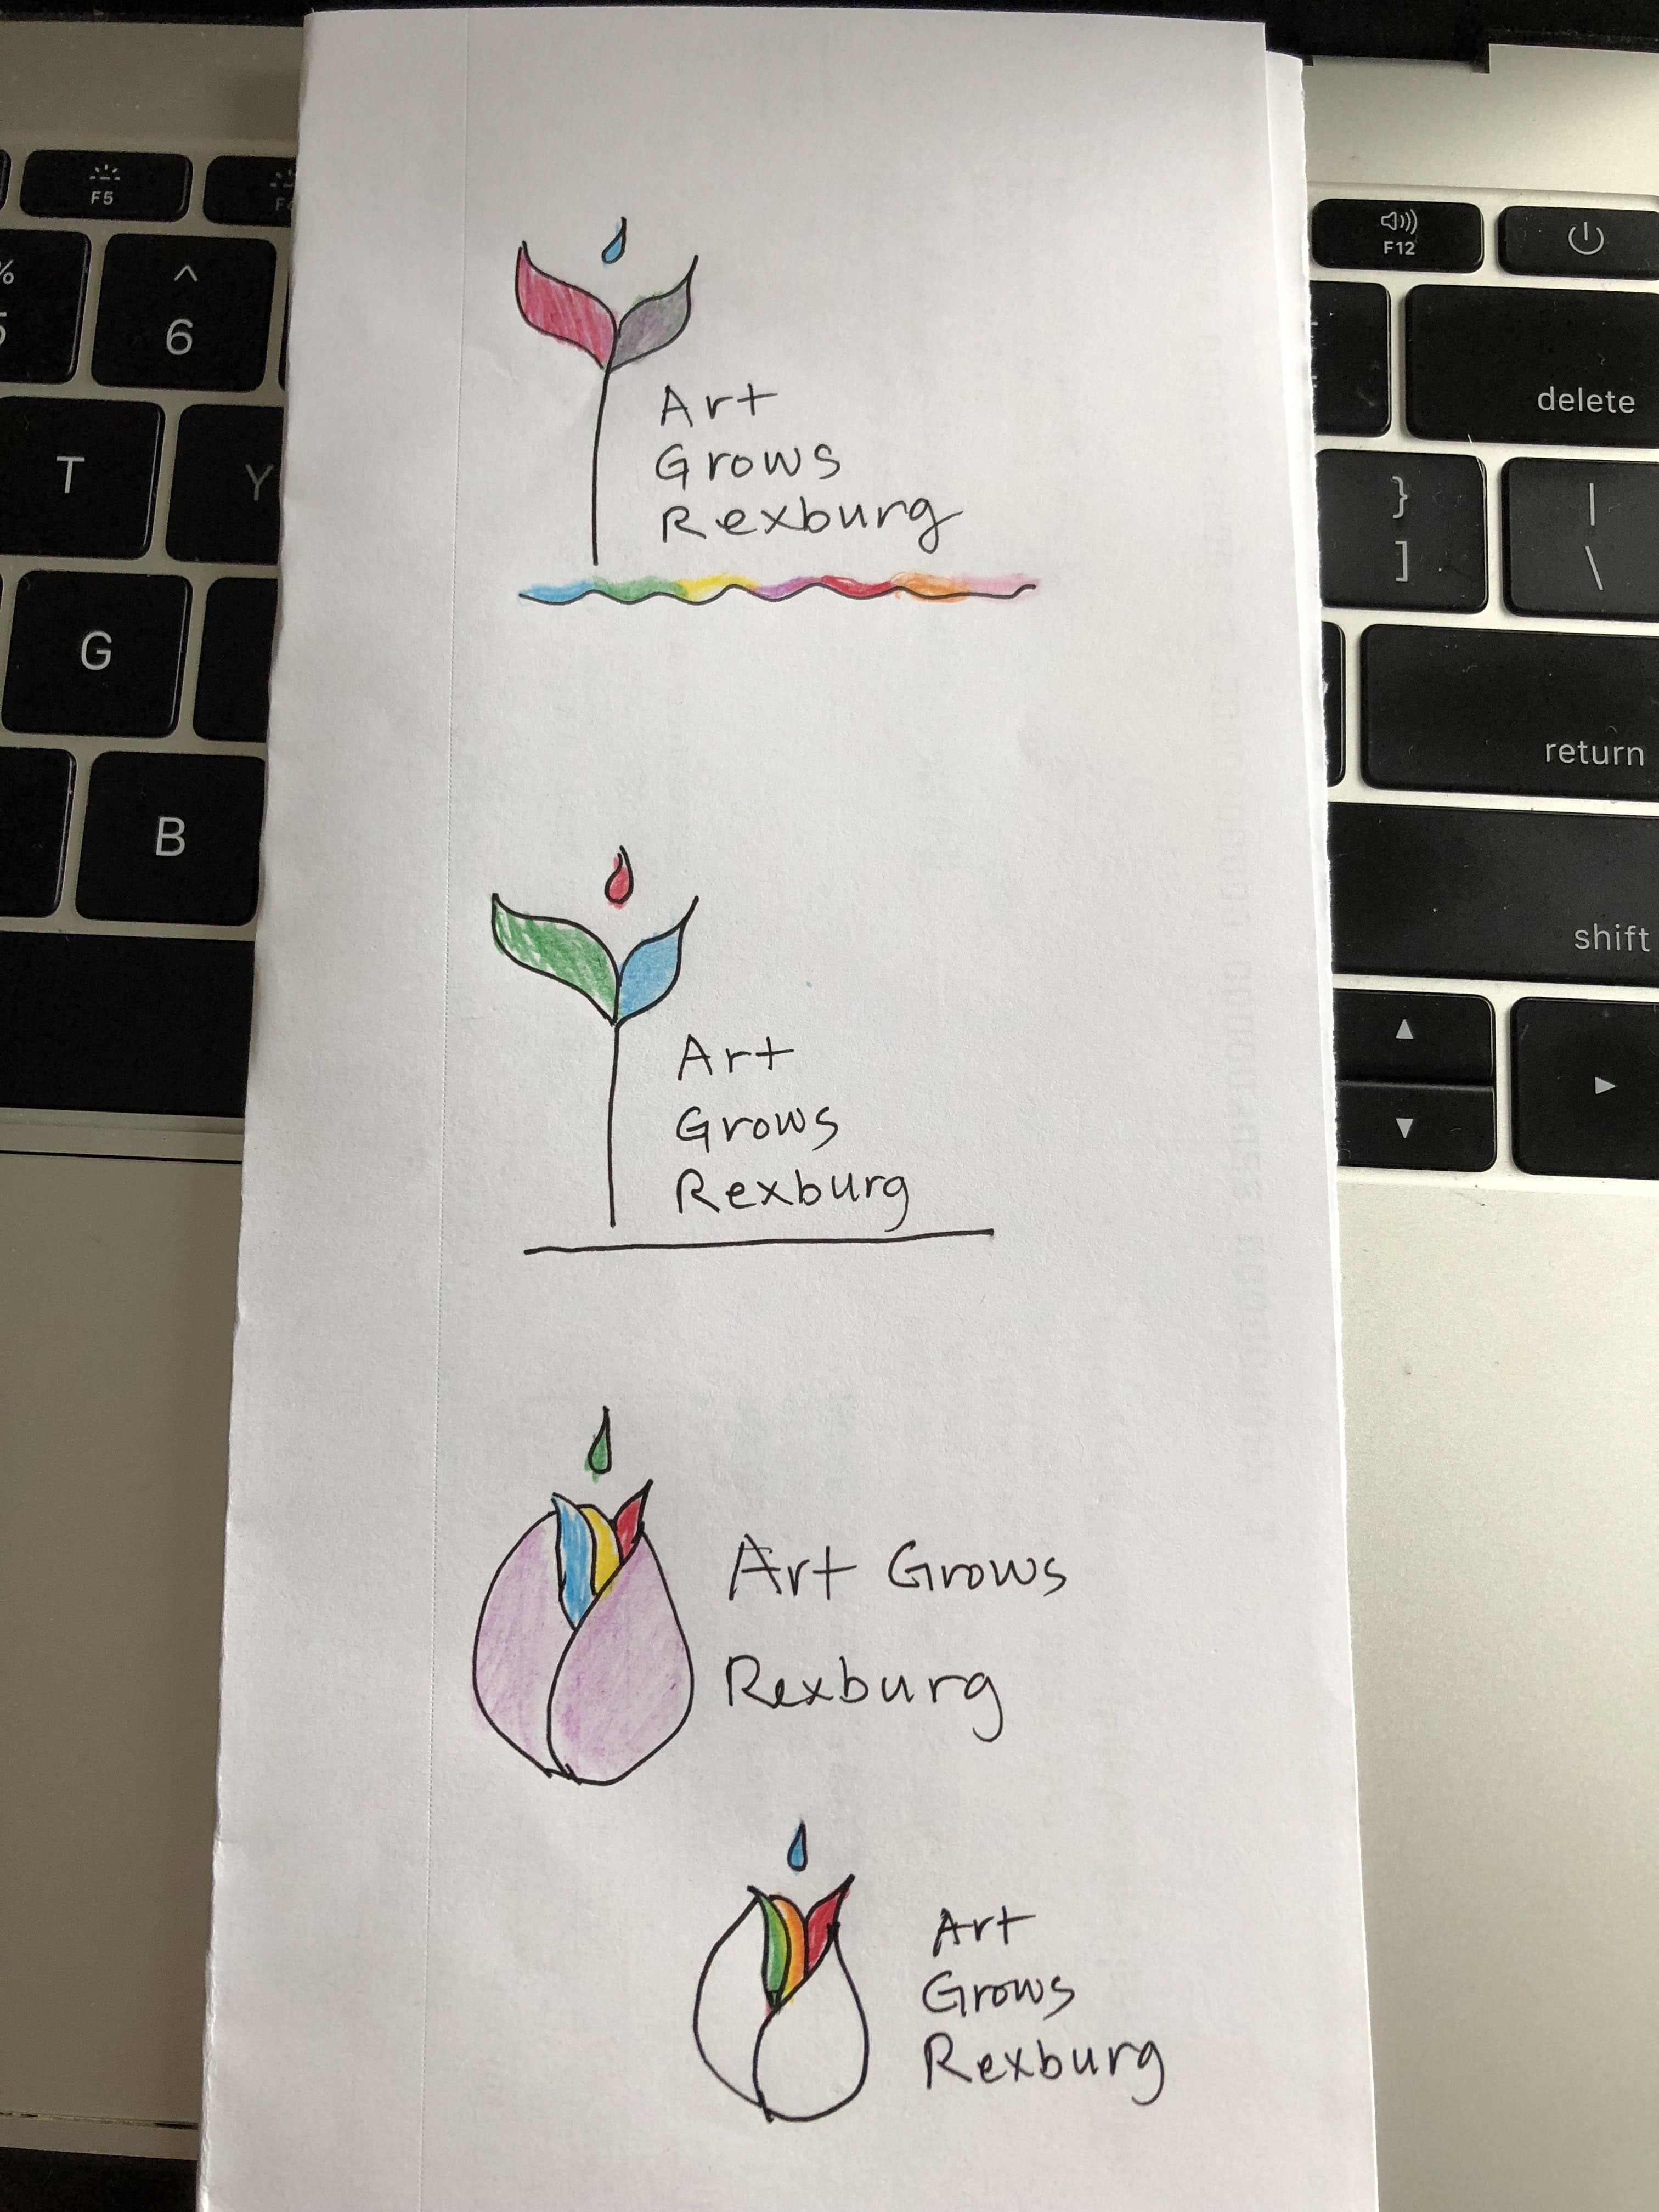 F5
%
5
^
6
T
Y
G
B
F12
delete
}
]
|
\
return
shift
Art
Grows
Rexburg
Art
Grows
Rexburg
Art Grows
Rexburg
Art
Grows
Rexburg